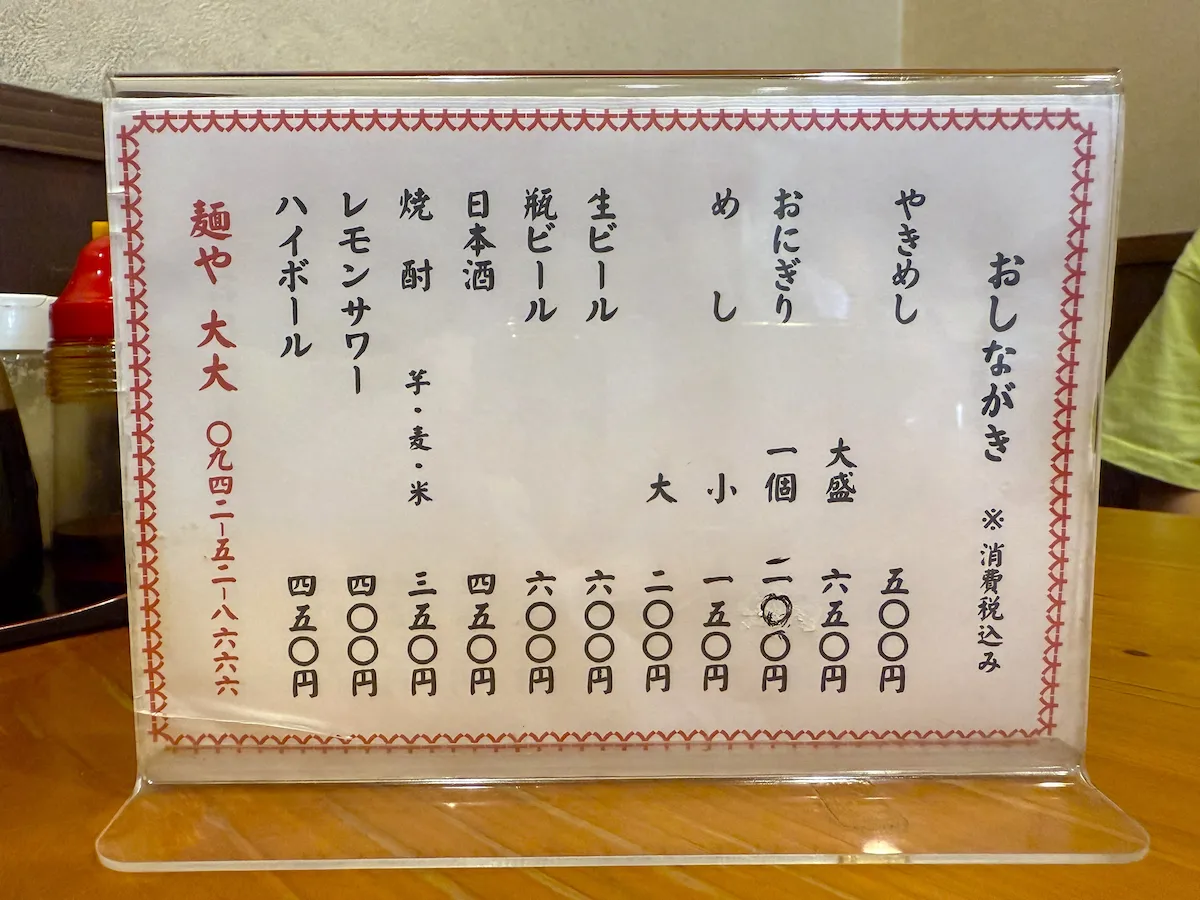 おしながき ※消費税込み
やきめし 五〇〇円
大盛 六五〇円
おにぎり 一個 二〇〇円
めし 小 一五〇円
大 二〇〇円
生ビール 六〇〇円
瓶ビール 六〇〇円
日本酒 四五〇円
焼酎 芋・麦・米 三五〇円
レモンサワー 四〇〇円
ハイボール 四五〇円
麺や 大大 〇九四二-五二-八六六六